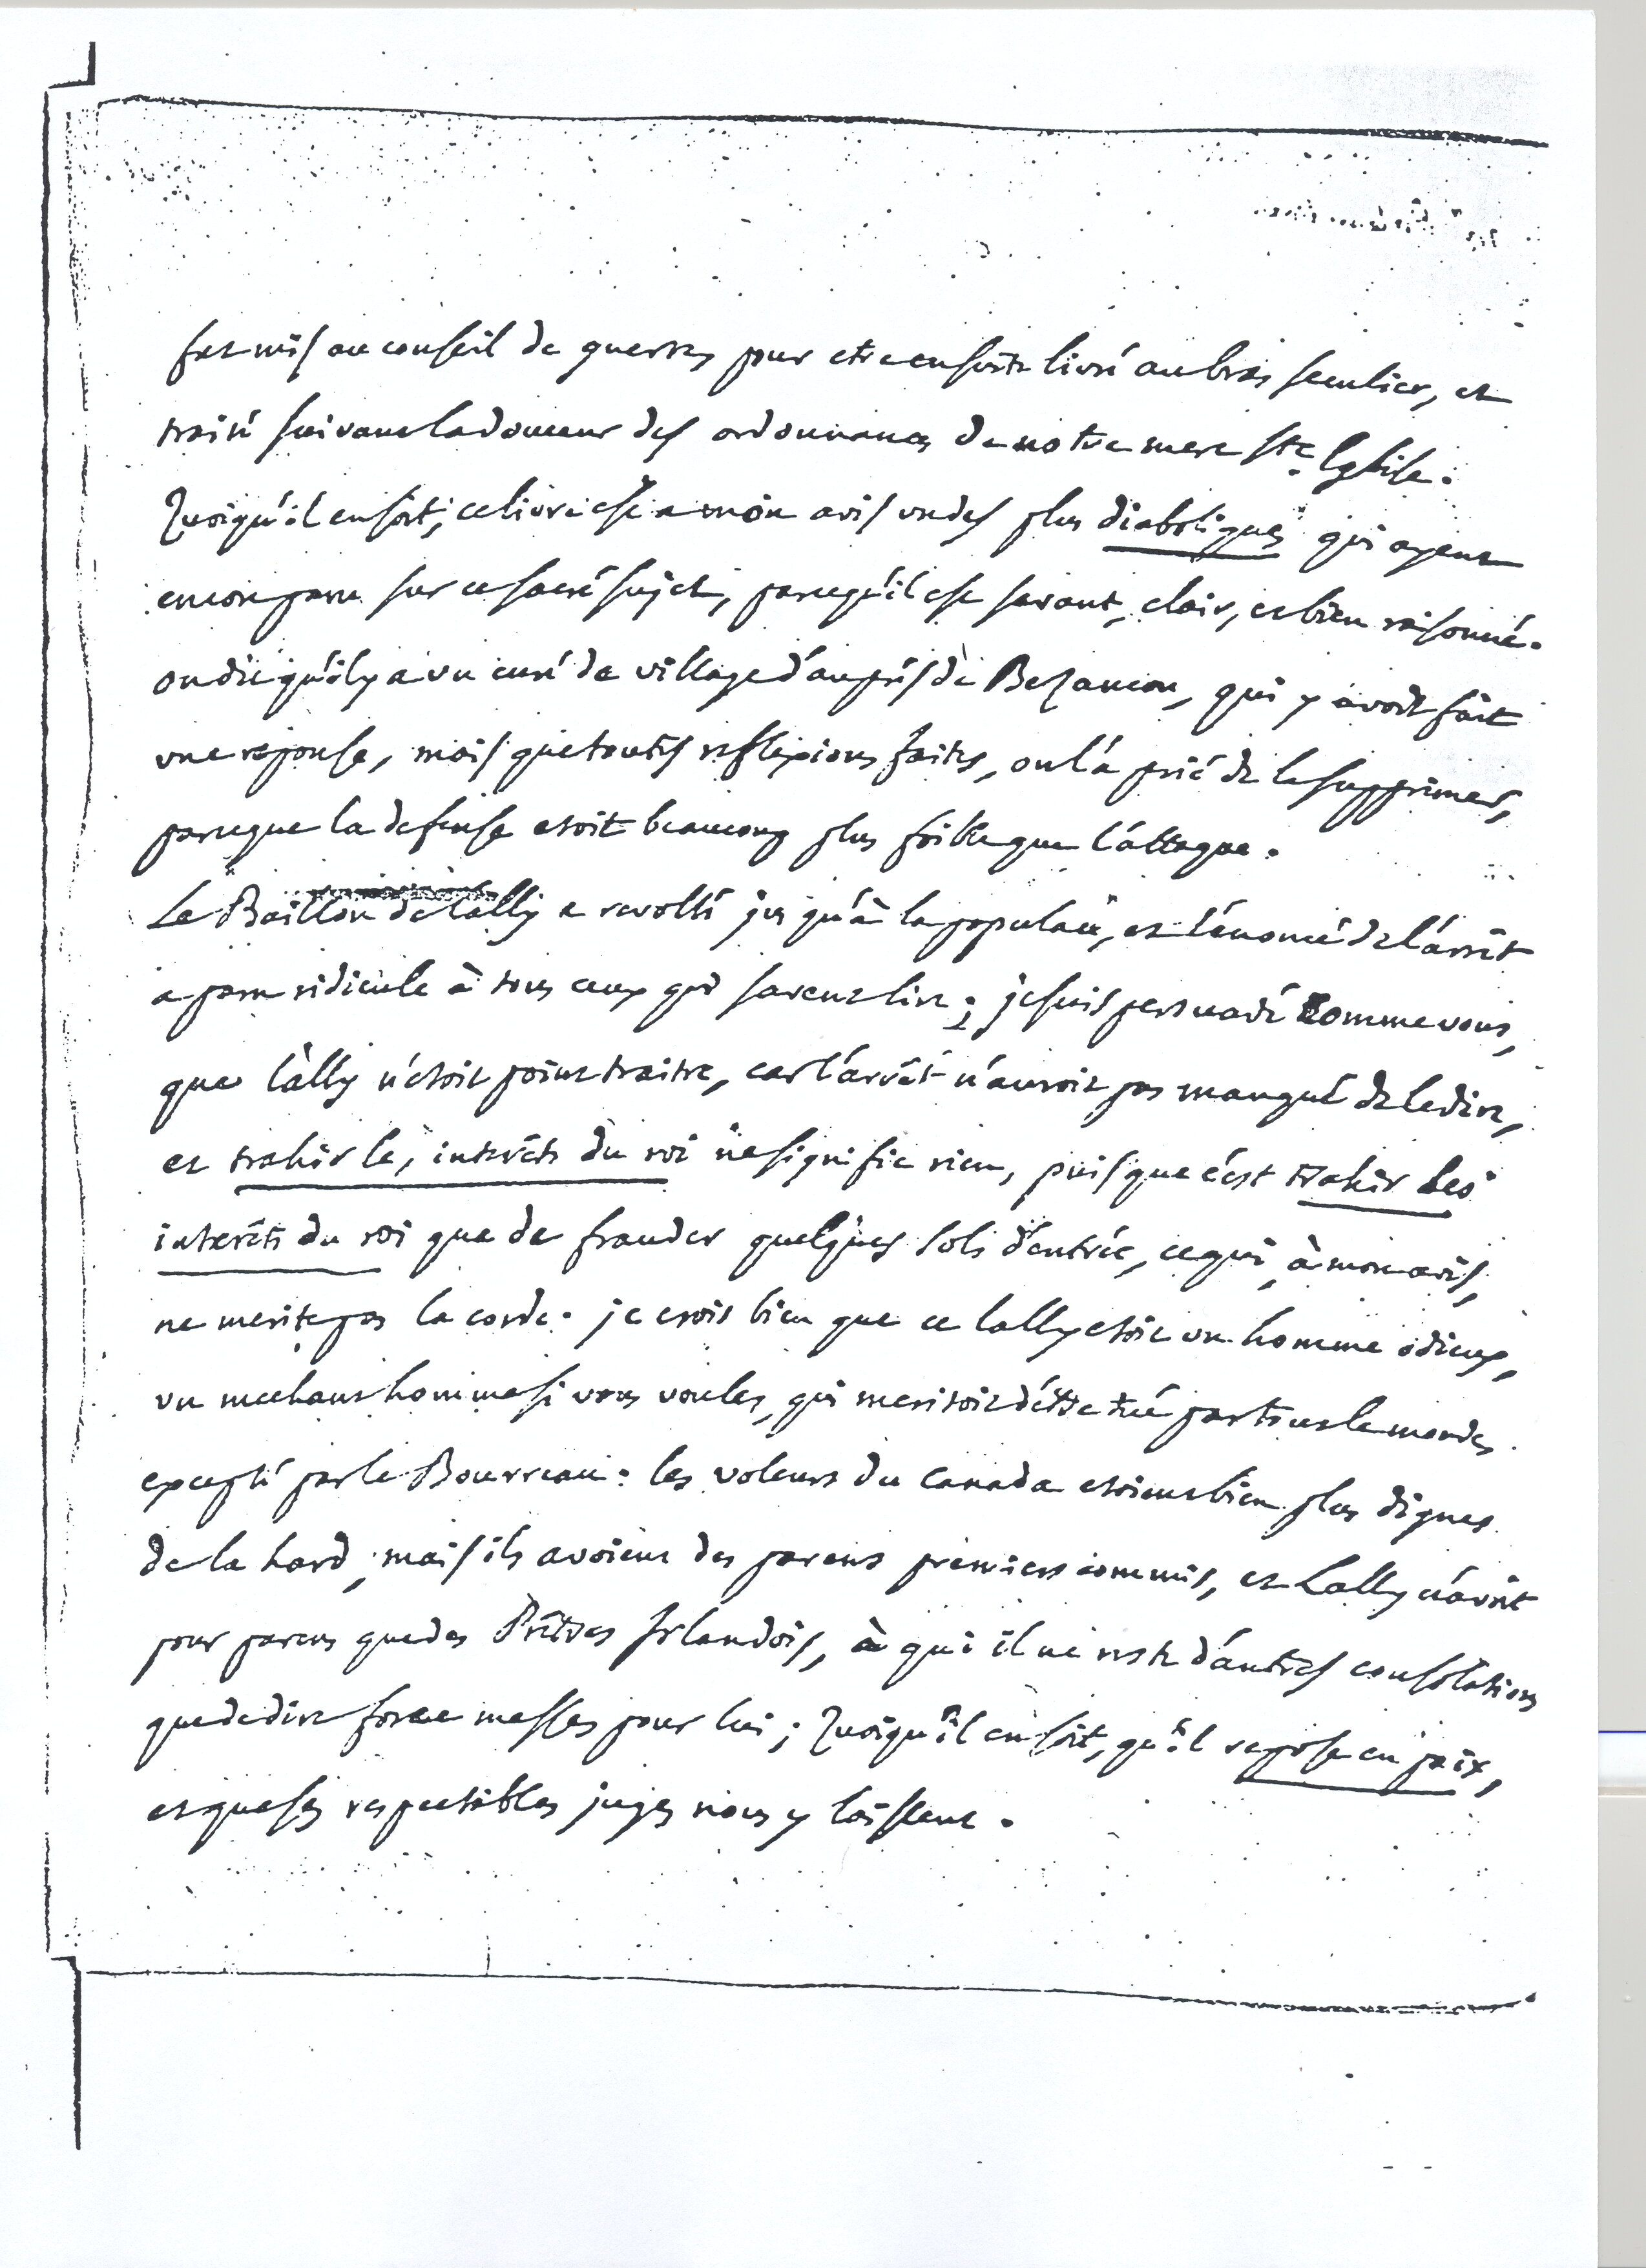 fut mis au conseil de guerre, pour etre ensuite livré au bras seculier, et
traité suivant la douceur des ordonnances de notre mere Ste Eglise.
Quoiqu'il en soit, ce livre est a mon avis un des plus diaboliques qui ayent
encore paru sur ce sacré sujet, parcequ'il est savant, clair, et bien raisonné.
on dit qu'il y a un curé de village d'auprès de Bezancon, qui y avoit fait
une reponse, mais que toutes reflexions faites, on l'a prié de la supprimer,
parceque la defense etoit beaucoup plus foible que l'attaque.
Le Baillon de Lally a revolté jusqu'à la populace, et l'énoncé de l'arrêt
a paru ridicule à tous ceux qui savent lire; je suis persuadé comme vous,
que Lally n'étoit point traitre, car l'arrêt n'auroit pas manqué de le dire,
et trahir les intérêts du roi ne signifie rien, puisque c'est trahir les
intérêts du roi que de frauder quelques sols d'entrée, ce qui, à mon avis,
ne merite pas la corde. je crois bien que ce Lally etoit un homme odieux,
un mechant homme si vous voulez, qui meritoit d'être tué par tout le monde
excepté par le Bourreau. les voleurs du Canada etoient bien plus dignes
de la hard, mais ils avoient des parens premiers commis, et Lally n'avoit
pour parens que des Prêtres Irlandois, à qui il ne reste d'autres consolations
que de dire force messes pour lui; Quoiqu'il en soit, qu'il repose en paix,
et que ses respectables juges nous y laissent.